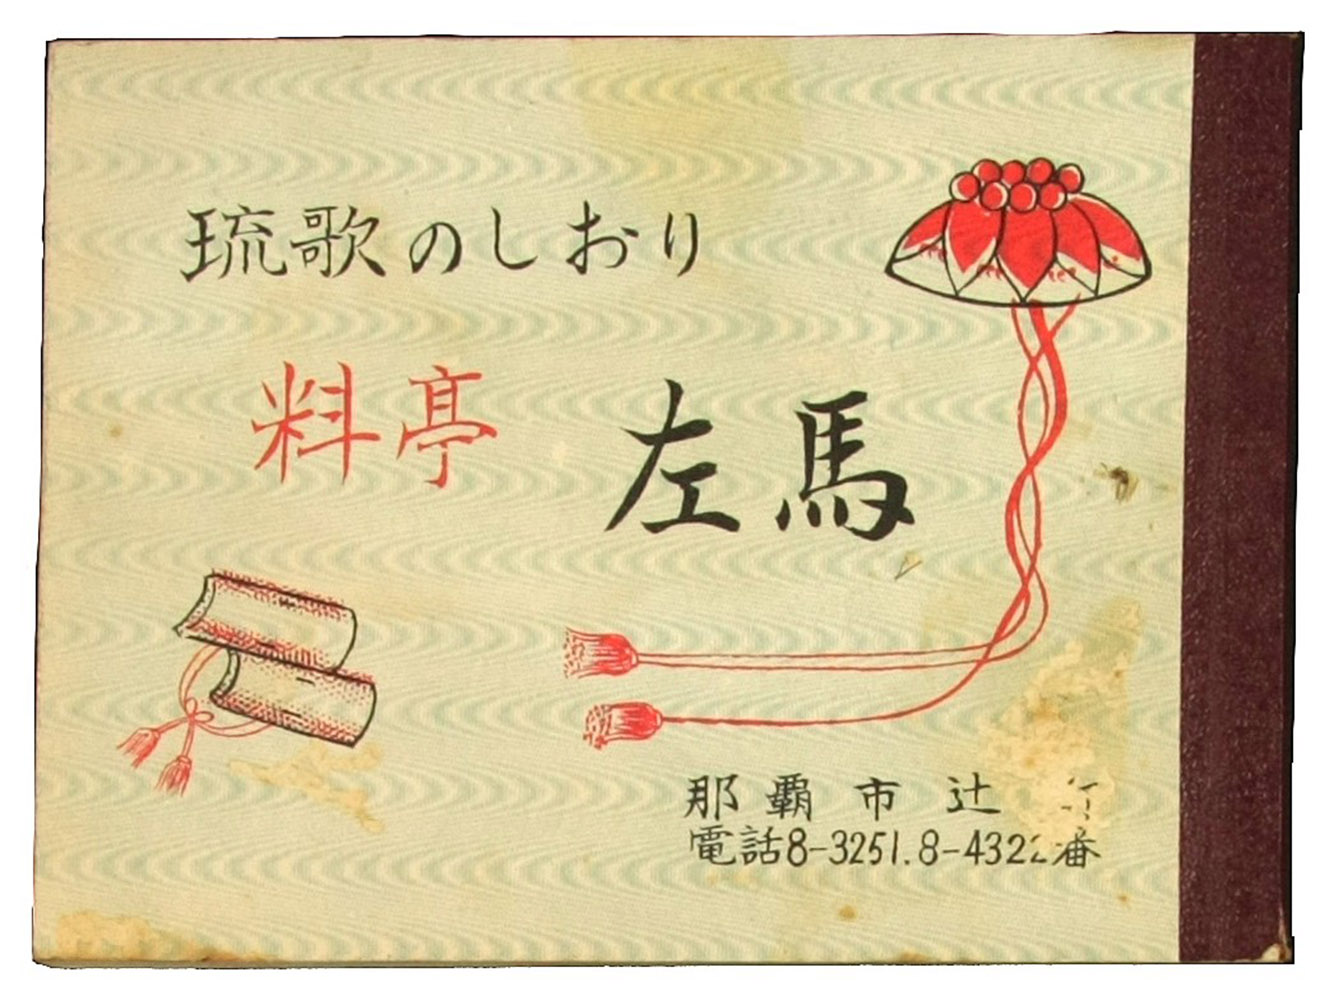 琉歌のしおり
料亭 左馬
那覇市辻
電話8-3251.8-4322番